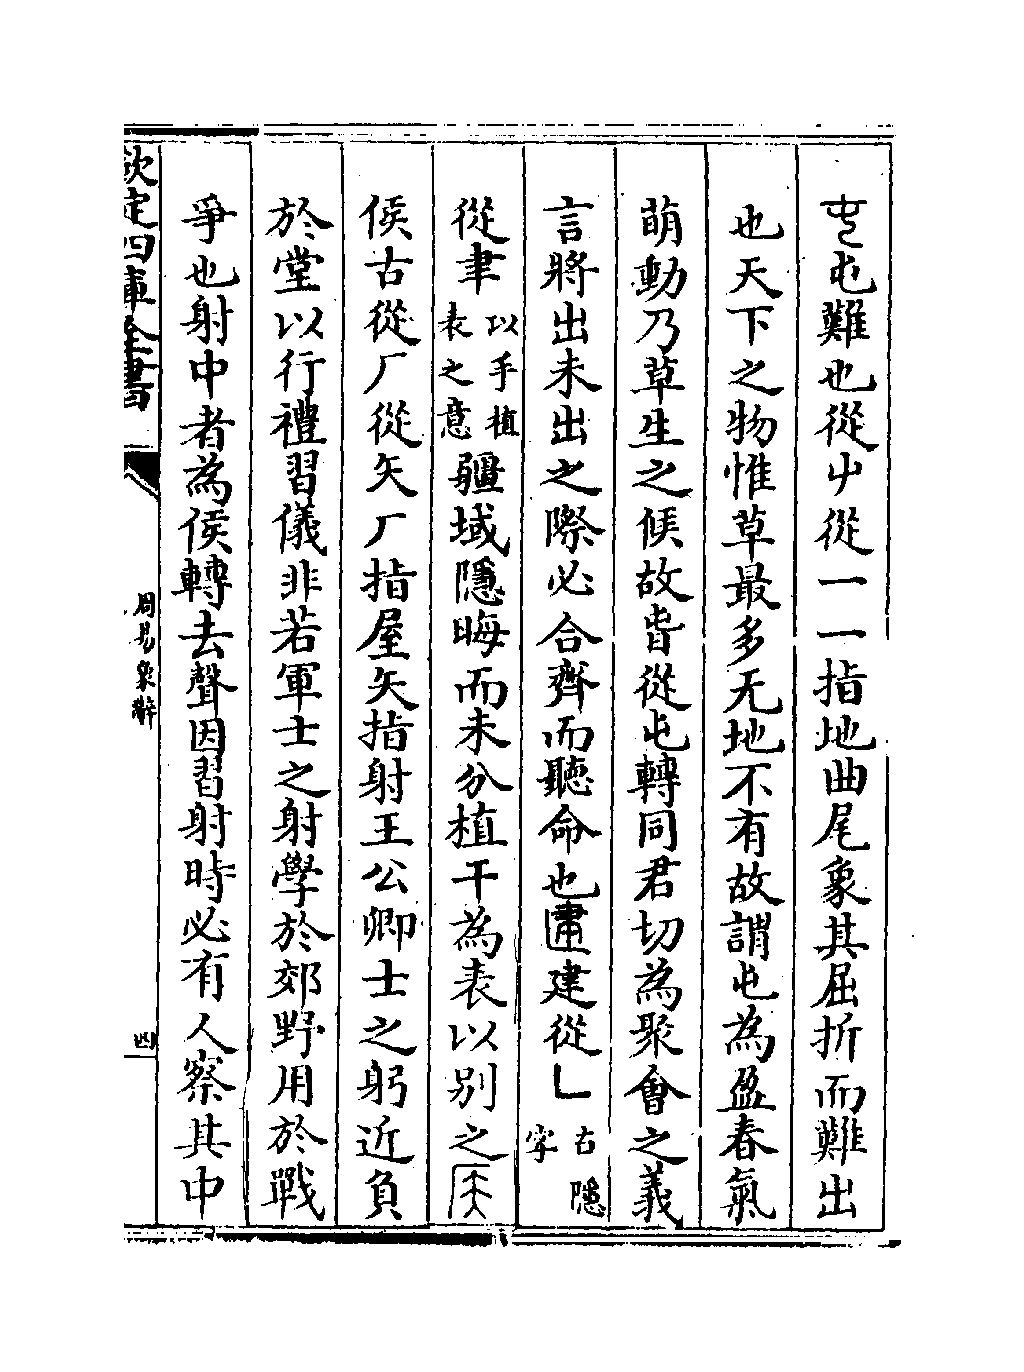 屯屯難也從屮從一一指地曲尾象其屈折而難出
也天下之物惟草最多无地不有故謂屯為盈春氣
萌動乃草生之候故皆從屯轉同君切為聚會之義
言將出未出之際必合齊而聽命也建建從𠃊古隱字
從聿以手植表之意疆域隱晦而未分植干為表以別之侯
侯古從厂從矢厂指屋矢指射王公卿士之躬近負
於堂以行禮習儀非若軍士之射學於郊野用於戰
爭也射中者為侯轉去聲因習射時必有人察其中
欽定四庫全書
周易象辭
四